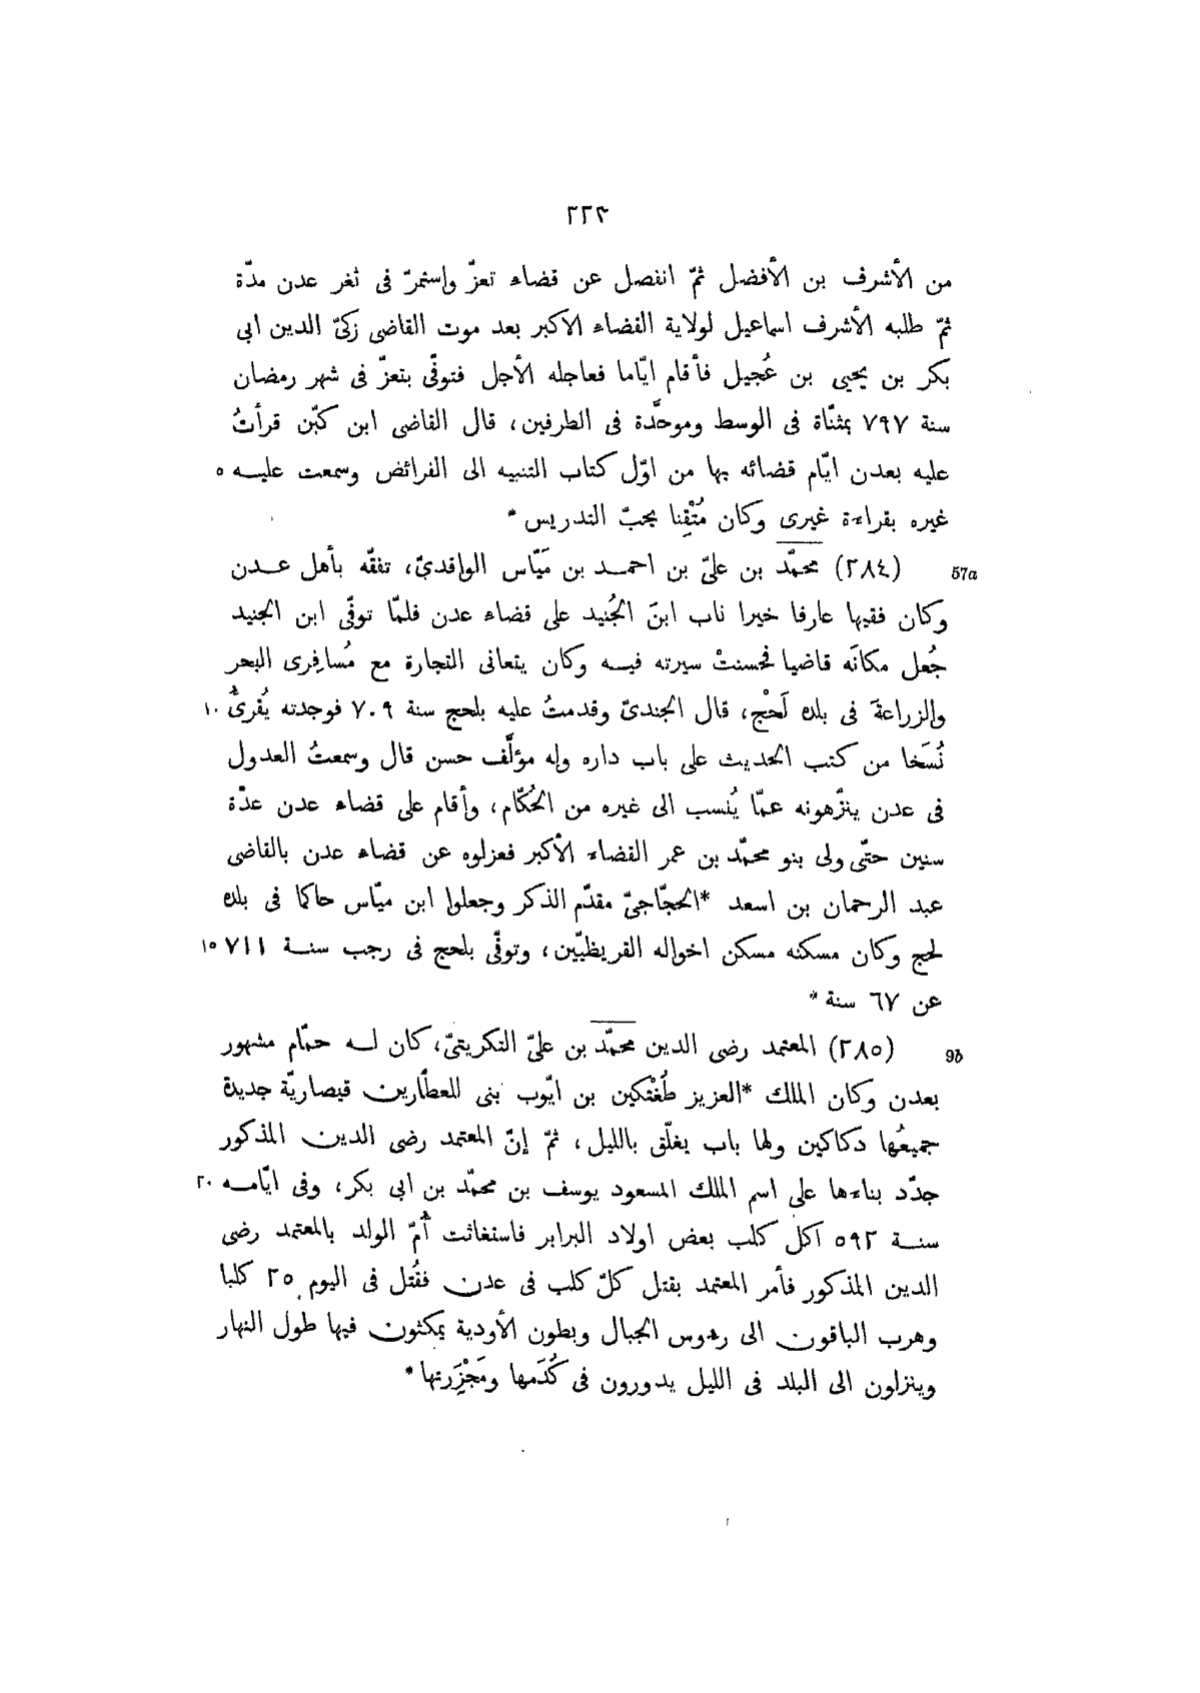 ٢٢٤
من الأشرف بن الأفضل ثمّ انفصل عن قضاء تعزّ واستمرّ فى ثغر عدن مدّة
ثمّ طلبه الأشرف اسماعيل لولاية القضاء الاكبر بعد موت القاضى زكىّ الدين ابى
بكر بن يحيى بن عُجيل فأقام ايّاما فعاجله الأجل فتوفّى بتعزّ فى شهر رمضان
سنة ٧٩٧ بمثنّاة فى الوسط وموحَّدة فى الطرفين، قال القاضى ابن كبّن قرأتُ
عليه بعدن ايّام قضائه بها من اوّل كتاب التنبيه الى الفرائض وسمعت عليه ٥
غيره بقراءة غيرى وكان مُتْقِنا يحبّ التدريس *
57a (٢٨٤) محمّد بن علىّ بن احمد بن مَيّاس الواقدىّ، تفقّه بأهل عدن
وكان فقيها عارفا خيرا ناب ابنَ الجُنيد على قضاء عدن فلمّا توفّى ابن الجنيد
جُعل مكانَه قاضيا فحسنتْ سيرته فيه وكان يتعانى التجارة مع مُسافِرى البحر
والزراعةَ فى بلده لَحْج، قال الجندىّ وقدمتُ عليه بلحج سنة ٧٠٩ فوجدته يُقرئُ ١٠
نُسَخا من كتب الحديث على باب داره وله مؤلَّف حسن قال وسمعتُ العدول
فى عدن ينزّهونه عمّا يُنسب الى غيره من الحُكّام، وأقام على قضاء عدن عدّة
سنين حتّى ولى بنو محمّد بن عمر القضاء الأكبر فعزلوه عن قضاء عدن بالقاضى
عبد الرحمان بن اسعد *الحجّاجىّ مقدّم الذكر وجعلوا ابن ميّاس حاكما فى بلده
لحج وكان مسكنه مسكن اخواله القريظيّين، وتوفّى بلحج فى رجب سنة ٧١١ ١٥
عن ٦٧ سنة *
9b (٢٨٥) المعتمد رضى الدين محمّد بن علىّ التكريتىّ، كان له حمّام مشهور
بعدن وكان الملك *العزيز طُغْتكين بن ايّوب بنى للعطّارين قيصاريّة جديدة
جميعُها دكاكين ولها باب يغلّق بالليل، ثمّ إنّ المعتمد رضى الدين المذكور
جدّد بناءها على اسم الملك المسعود يوسف بن محمّد بن ابى بكر، وفى ايّامه ٢٠
سنة ٥٩٣ اكل كلب بعض اولاد البرابر فاستغاثت أُمّ الولد بالمعتمد رضى
الدين المذكور فأمر المعتمد بقتل كلّ كلب فى عدن فقُتل فى اليوم ٢٥ كلبا
وهرب الباقون الى رءوس الجبال وبطون الأودية يمكثون فيها طول النهار
وينزلون الى البلد فى الليل يدورون فى كُدَمها ومَجْزِرَتها *